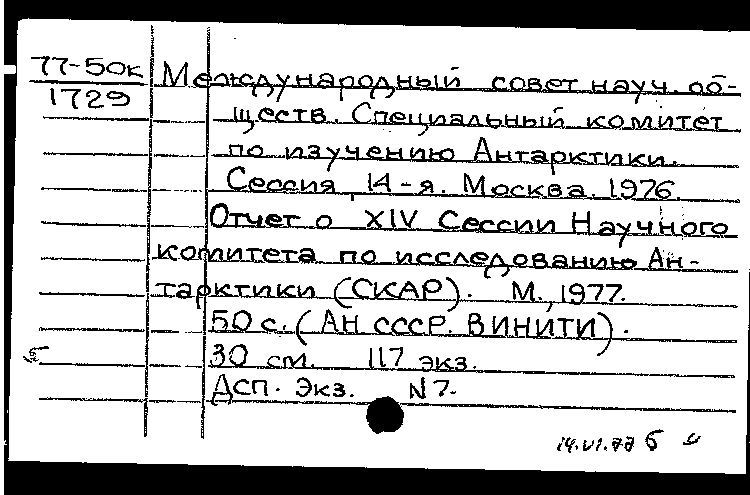 77-50к
1729
Международный совет науч. об-
ществ. Специальный комитет
по изучению Антарктики.
Сессия, 14-я. Москва. 1976.
Отчет о XIV Сессии Научного
комитета по исследованию Ан-
тарктики (СКАР). М., 1977.
50 с. (АН СССР. ВИНИТИ).
30 см. 117 экз.
Дсп. Экз. N 7.
14.VI.77 б